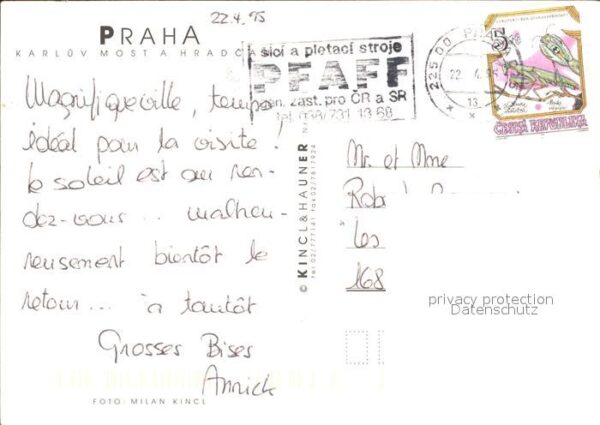 22.4.95
PRAHA
KARLŮV MOST A HRADČA
Magnifique ville, temps
idéal pour la visite !
le soleil est au ren-
dez-vous .. malheu-
reusement bientôt le
retour... à tantôt
Grosses Bises
Annick
FOTO: MILAN KINCL
© KINCL & HAUNER
šicí a pletací stroje
PFAFF
zast. pro ČR a SR
225 00
22
13
5
ČESKÁ REPUBLIKA
Mr. et Mme
Rob
Los
168
privacy protection
Datenschutz